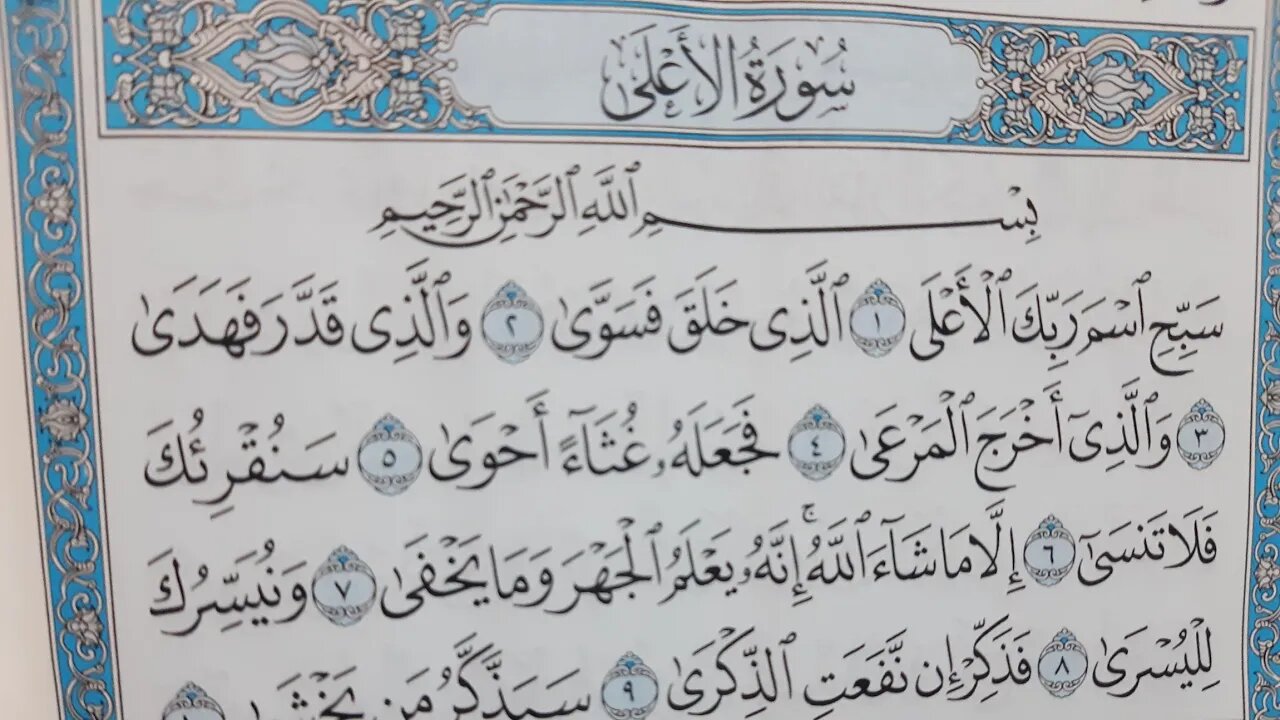 سُورَةُ الأَعْلَى
بِسْمِ ٱللَّهِ ٱلرَّحْمَٰنِ ٱلرَّحِيمِ
سَبِّحِ ٱسْمَ رَبِّكَ ٱلْأَعْلَى ١ ٱلَّذِى خَلَقَ فَسَوَّىٰ ٢ وَٱلَّذِى قَدَّرَ فَهَدَىٰ
٣ وَٱلَّذِىٓ أَخْرَجَ ٱلْمَرْعَىٰ ٤ فَجَعَلَهُۥ غُثَآءً أَحْوَىٰ ٥ سَنُقْرِئُكَ
فَلَا تَنسَىٰٓ ٦ إِلَّا مَا شَآءَ ٱللَّهُۚ إِنَّهُۥ يَعْلَمُ ٱلْجَهْرَ وَمَا يَخْفَىٰ ٧ وَنُيَسِّرُكَ
لِلْيُسْرَىٰ ٨ فَذَكِّرْ إِن نَّفَعَتِ ٱلذِّكْرَىٰ ٩ سَيَذَّكَّرُ مَن يَخْشَىٰ ١٠